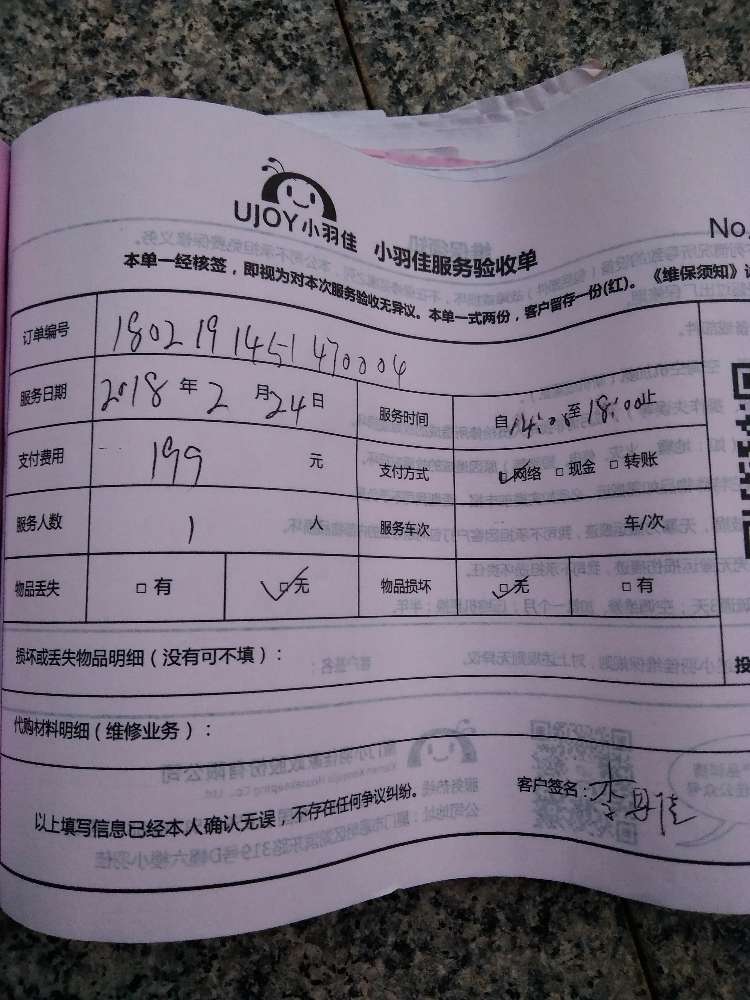 UJOY小羽佳 小羽佳服务验收单
No.
本单一经核签，即视为对本次服务验收无异议。本单一式两份，客户留存一份(红)。《维保须知》
订单编号 1802191451470004
服务日期 2018年2月24日 服务时间 自14:00至18:00止
支付费用 199 元 支付方式 ☑网络 □现金 □转账
服务人数 1 人 服务车次 车/次
物品丢失 □有 ☑无 物品损坏 ☑无 □有
损坏或丢失物品明细（没有可不填）：
代购材料明细（维修业务）：
以上填写信息已经本人确认无误，不存在任何争议纠纷。 客户签名：李丹佳